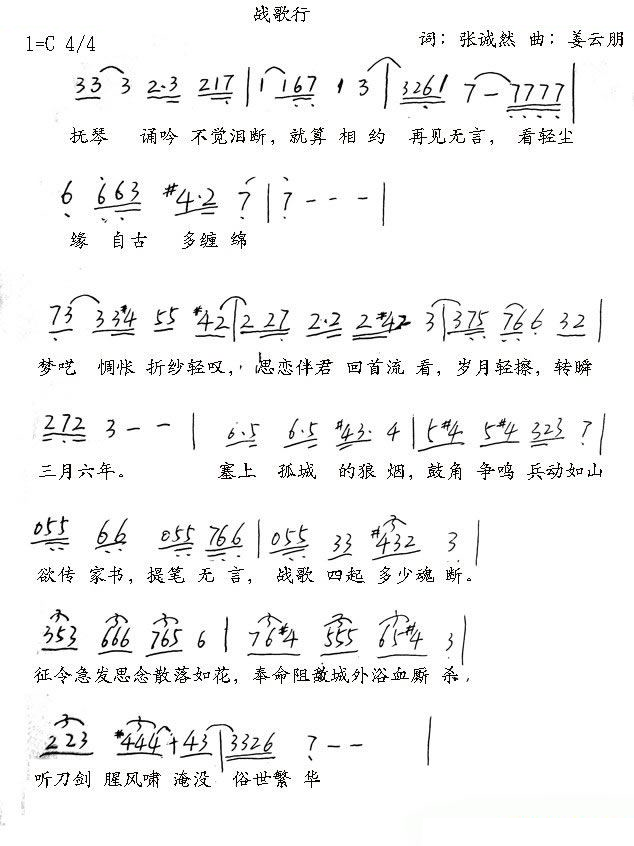 战歌行
1=C 4/4 词：张诚然 曲：姜云朋
33 3 2·3 217 | 1 167 1 3 | 3261 7 - 7777 |
抚琴 诵吟 不觉泪断，就算 相 约 再见无言， 看轻尘
6 663 #4·2 7 | 7 - - - |
缘 自古 多缠 绵
73 33#4 55 #42 | 2 27 2·2 2#42 3 | 375 766 32 |
梦呓 惆怅 折纱轻叹， 思恋伴君 回首流 看，岁月轻擦，转瞬
272 3 - - | 6·5 6·5 #43· 4 | 5#4 5#4 323 7 |
三月六年。 塞上 孤城 的狼 烟，鼓角 争鸣 兵动如山
055 66 055 766 | 055 33 #432 3 |
欲传 家书，提笔 无 言， 战歌 四起 多少魂 断。
353 666 765 6 | 76#4 555 65#4 3 |
征令急发思念散落如花，奉命阻敌城外浴血厮 杀，
223 #444+43 | 3326 7 - - |
听刀剑 腥风啸 淹没 俗世繁 华